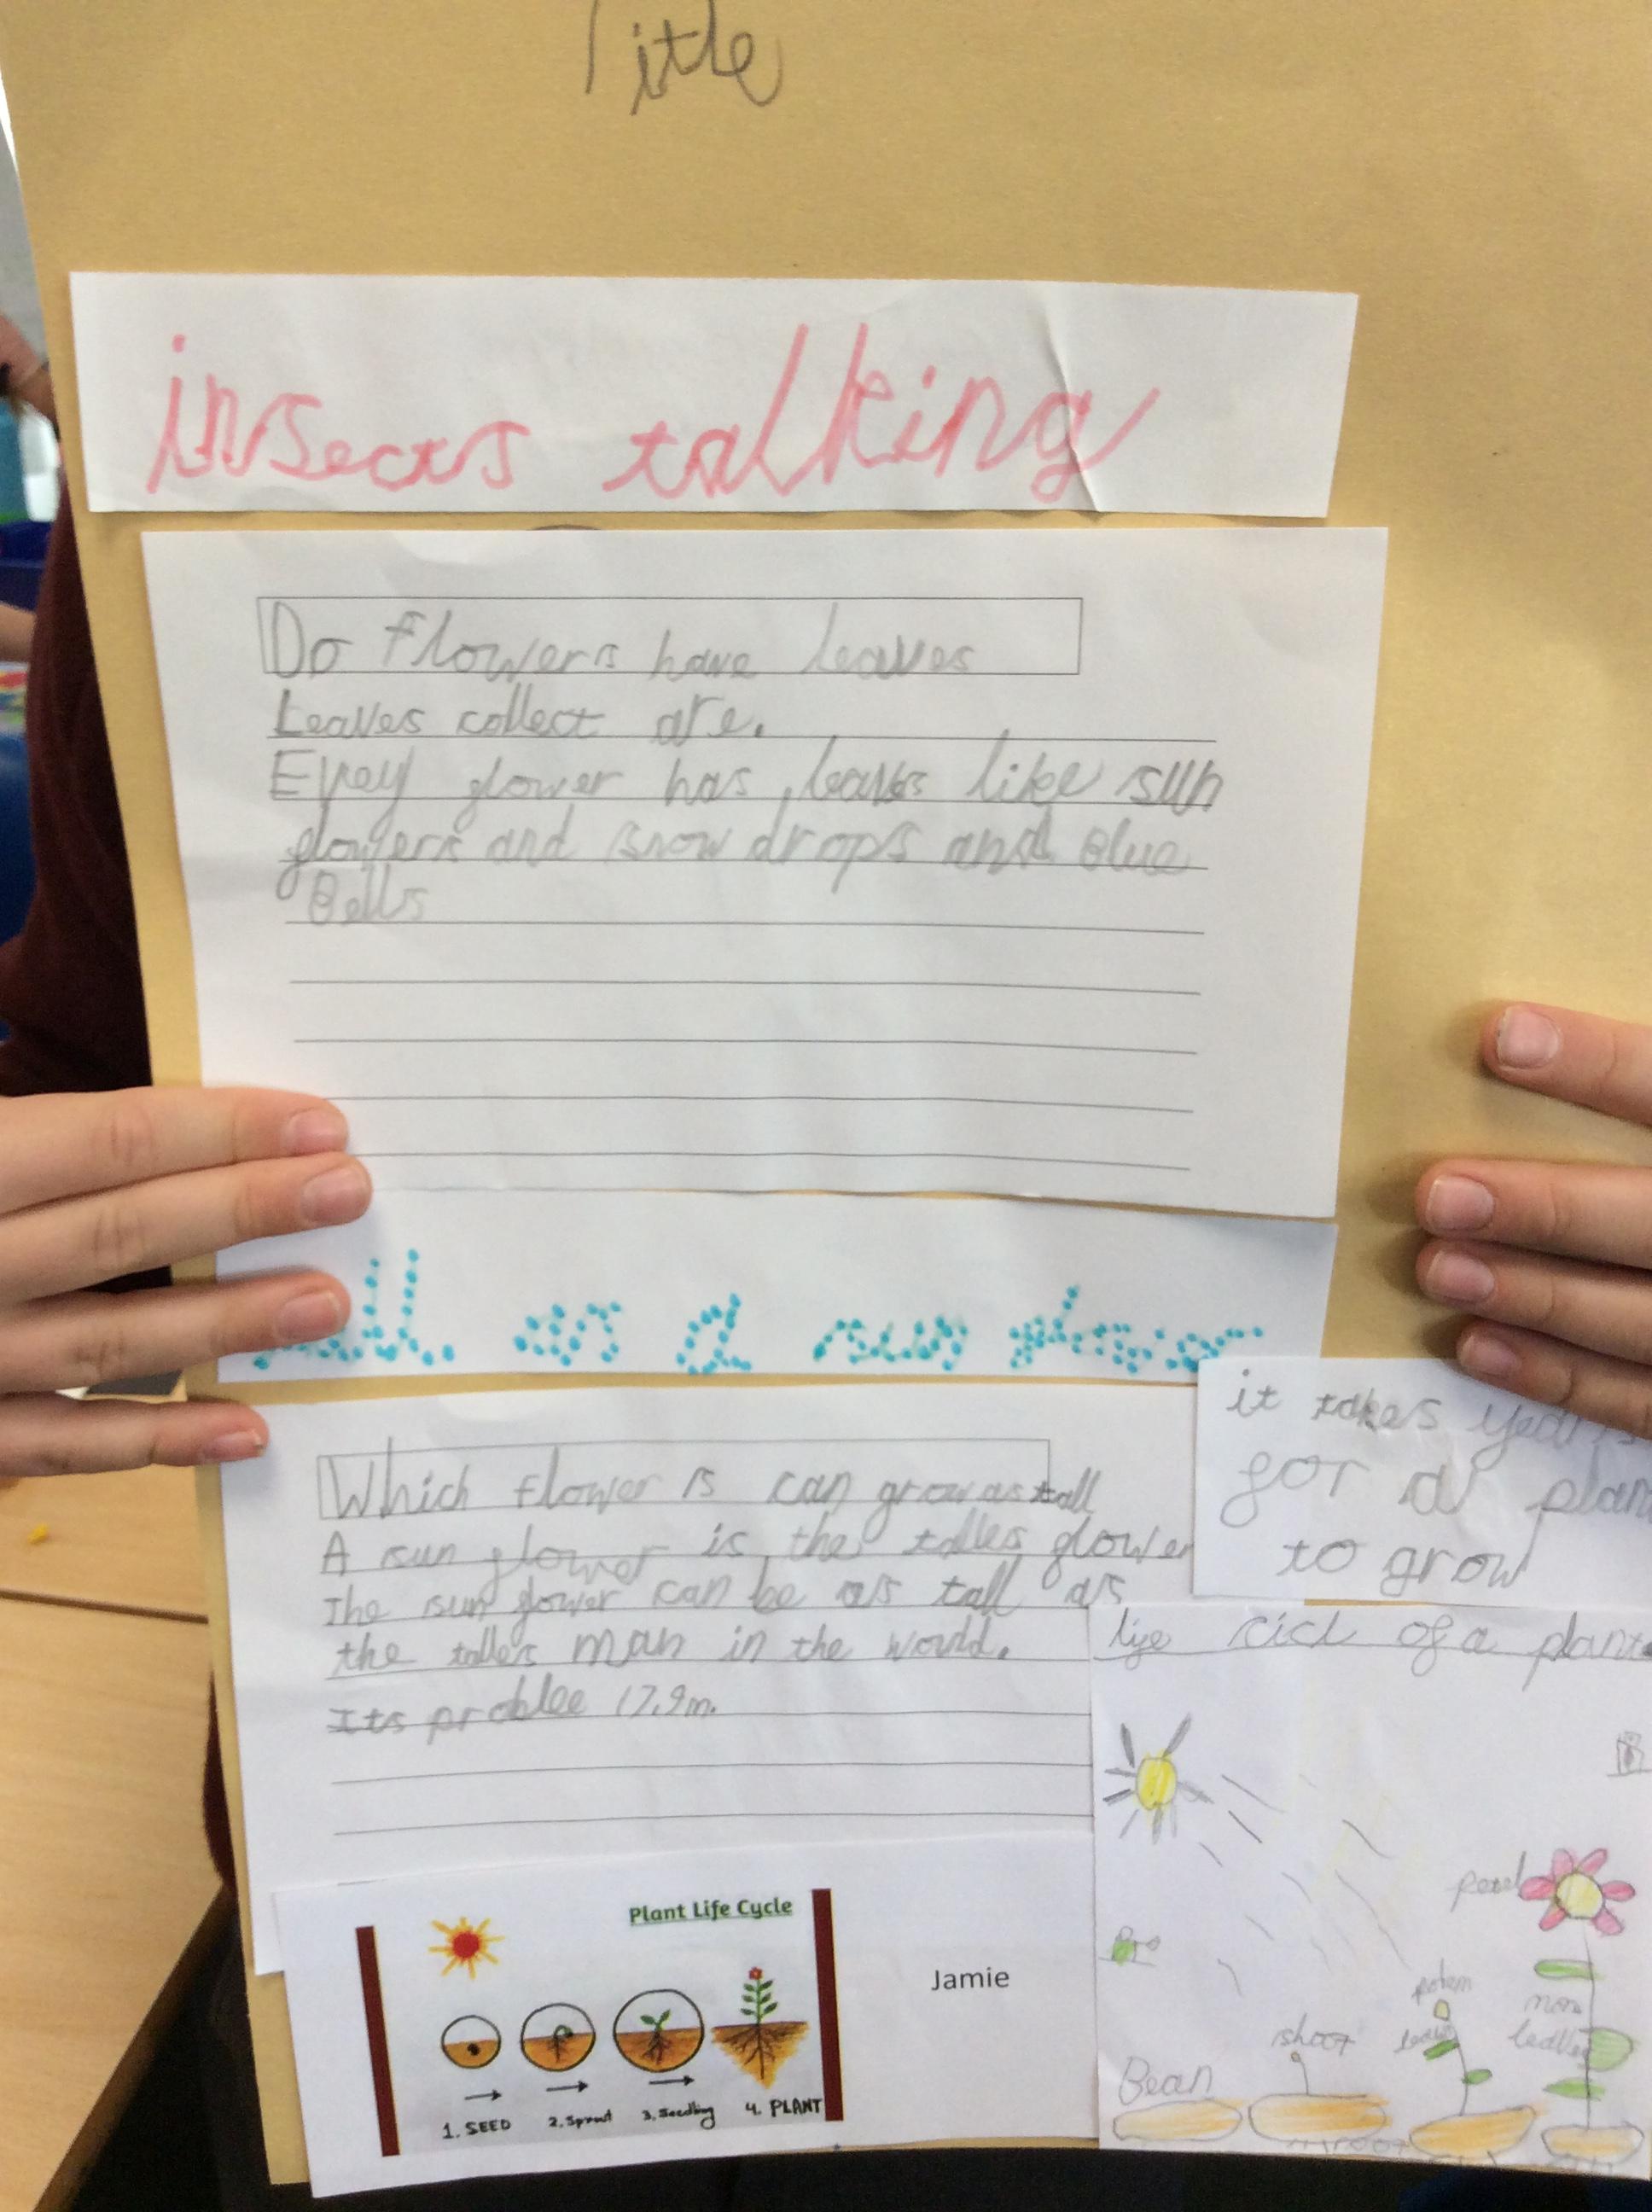 Title
insects talking
Do flowers have leaves
Leaves collect are.
Evrey flower has leaves like sun
flowers and snow drops and Blue
Bells
as a sun flower
Which flower is can grow as tall
A sun flower is the talles flower
The sun flower can be as tall as
the talles man in the would.
Its problee 17.9m.
it takes years
for a plan
to grow
life cicl of a plant
petel
more
leaves
shoot
Bean
root
Plant Life Cycle
Jamie
1. SEED
2. Sprout
3. Seedling
4. PLANT